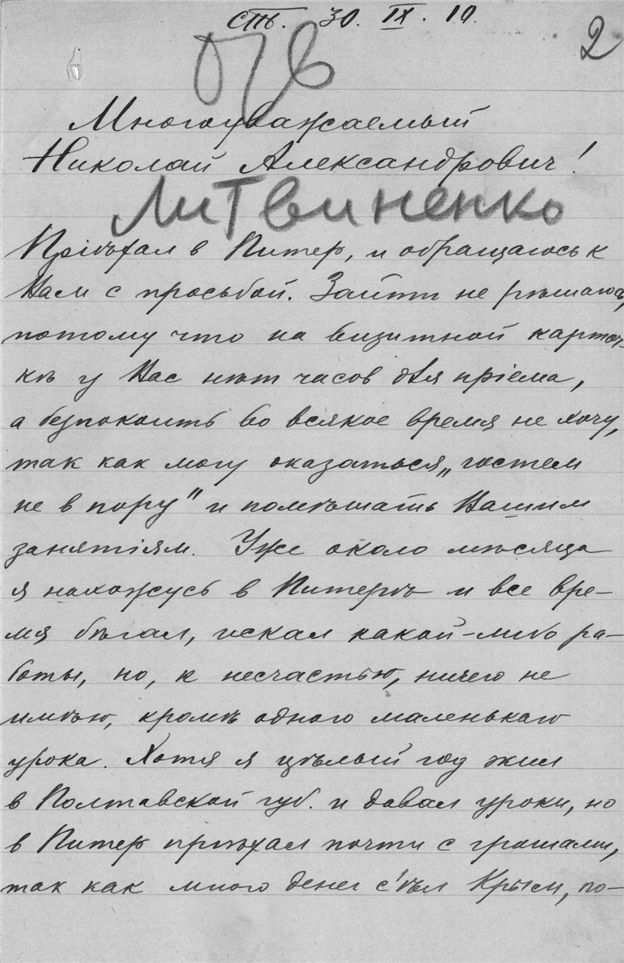 СПб. 30. IX. 10.
2
отв
Многоуважаемый
Николай Александрович!
Литвиненко
Пріѣхал в Питер, и обращаюсь к
Вам с просьбой. Зайти не рѣшаюсь,
потому что на визитной карточ-
кѣ у Вас нѣт часов для пріема,
а безпокоить во всякое время не хочу,
так как могу оказаться „гостем
не в пору" и помѣшать Вашим
занятіям. Уже около мѣсяца
я нахожусь в Питерѣ и все вре-
мя бѣгал, искал какой-либо ра-
боты, но, к несчастью, ничего не
имѣю, кромѣ одного маленькаго
урока. Хотя я цѣлый год жил
в Полтавской губ. и давал уроки, но
в Питер пріѣхал почти с грошами,
так как много денег с'ѣл Крым, по-